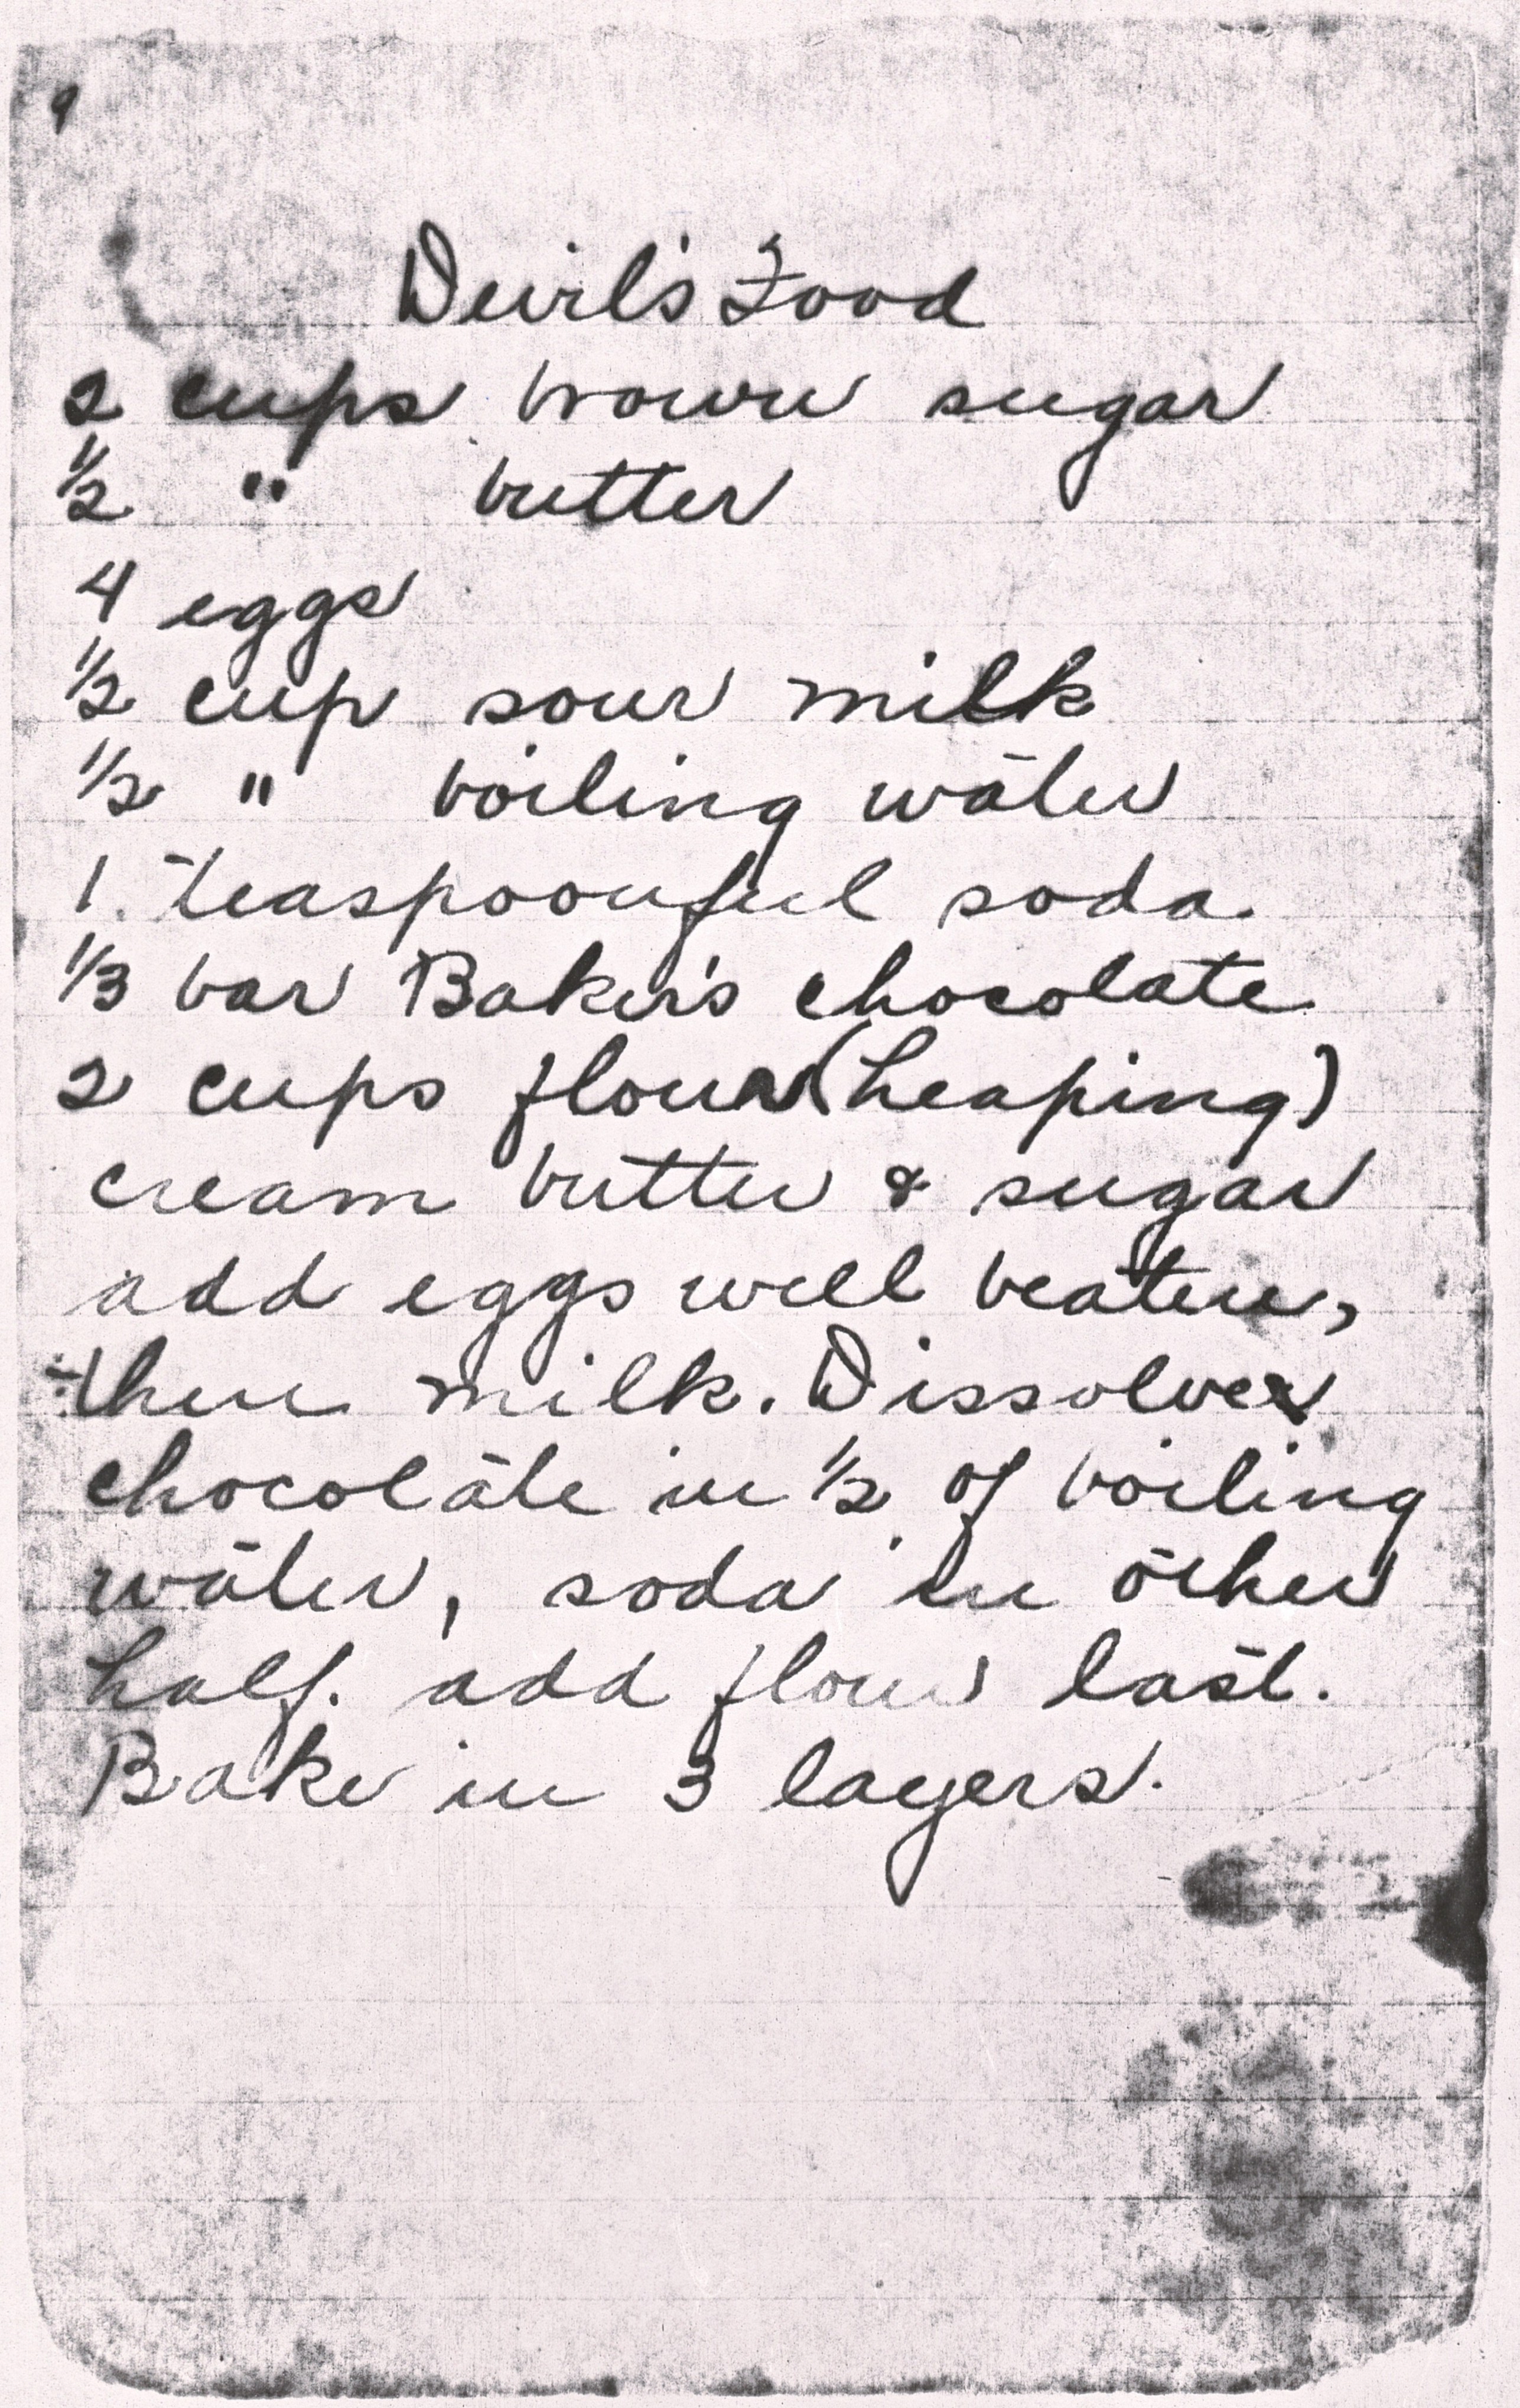 9
Devil's Food
2 cups brown sugar
1/2 " butter
4 eggs
1/2 cup sour milk
1/2 " boiling water
1 teaspoonful soda.
1/3 bar Baker's chocolate
2 cups flour (heaping)
cream butter & sugar
add eggs well beaten,
then milk. Dissolve
chocolate in 1/2 of boiling
water, soda in other
half. add flour last.
Bake in 3 layers.